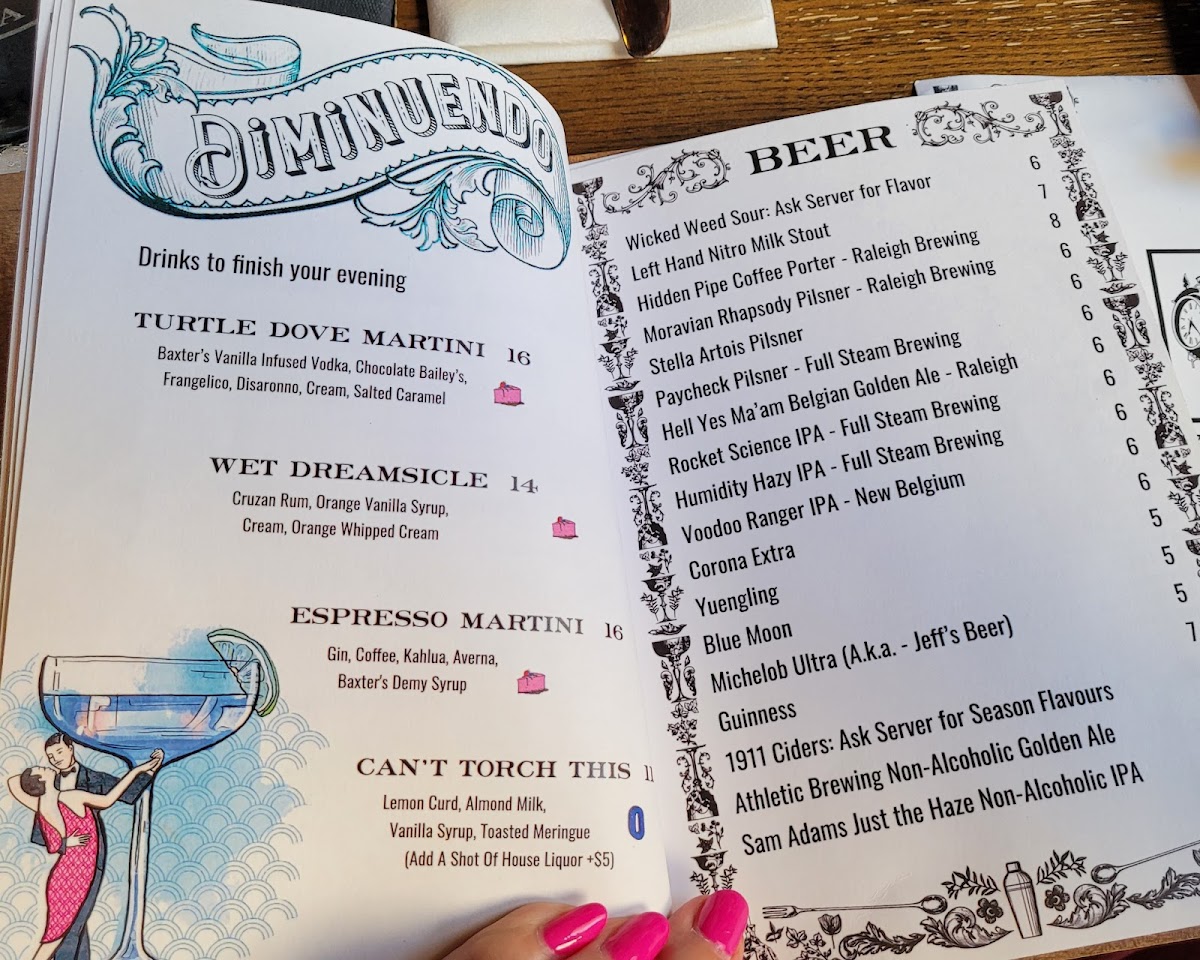 A
DIMINUENDO
Drinks to finish your evening
TURTLE DOVE MARTINI 16
Baxter's Vanilla Infused Vodka, Chocolate Bailey's,
Frangelico, Disaronno, Cream, Salted Caramel
WET DREAMSICLE 14
Cruzan Rum, Orange Vanilla Syrup,
Cream, Orange Whipped Cream
ESPRESSO MARTINI 16
Gin, Coffee, Kahlua, Averna,
Baxter's Demy Syrup
CAN'T TORCH THIS 11
Lemon Curd, Almond Milk,
Vanilla Syrup, Toasted Meringue
0
(Add A Shot Of House Liquor +$5)
BEER
Wicked Weed Sour: Ask Server for Flavor 6
Left Hand Nitro Milk Stout 7
Hidden Pipe Coffee Porter - Raleigh Brewing 8
Moravian Rhapsody Pilsner - Raleigh Brewing 6
Stella Artois Pilsner 6
Paycheck Pilsner - Full Steam Brewing 6
Hell Yes Ma'am Belgian Golden Ale - Raleigh 6
Rocket Science IPA - Full Steam Brewing 6
Humidity Hazy IPA - Full Steam Brewing 6
Voodoo Ranger IPA - New Belgium 6
Corona Extra 6
Yuengling 5
Blue Moon 5
Michelob Ultra (A.k.a. - Jeff's Beer) 5
Guinness 7
1911 Ciders: Ask Server for Season Flavours
Athletic Brewing Non-Alcoholic Golden Ale
Sam Adams Just the Haze Non-Alcoholic IPA